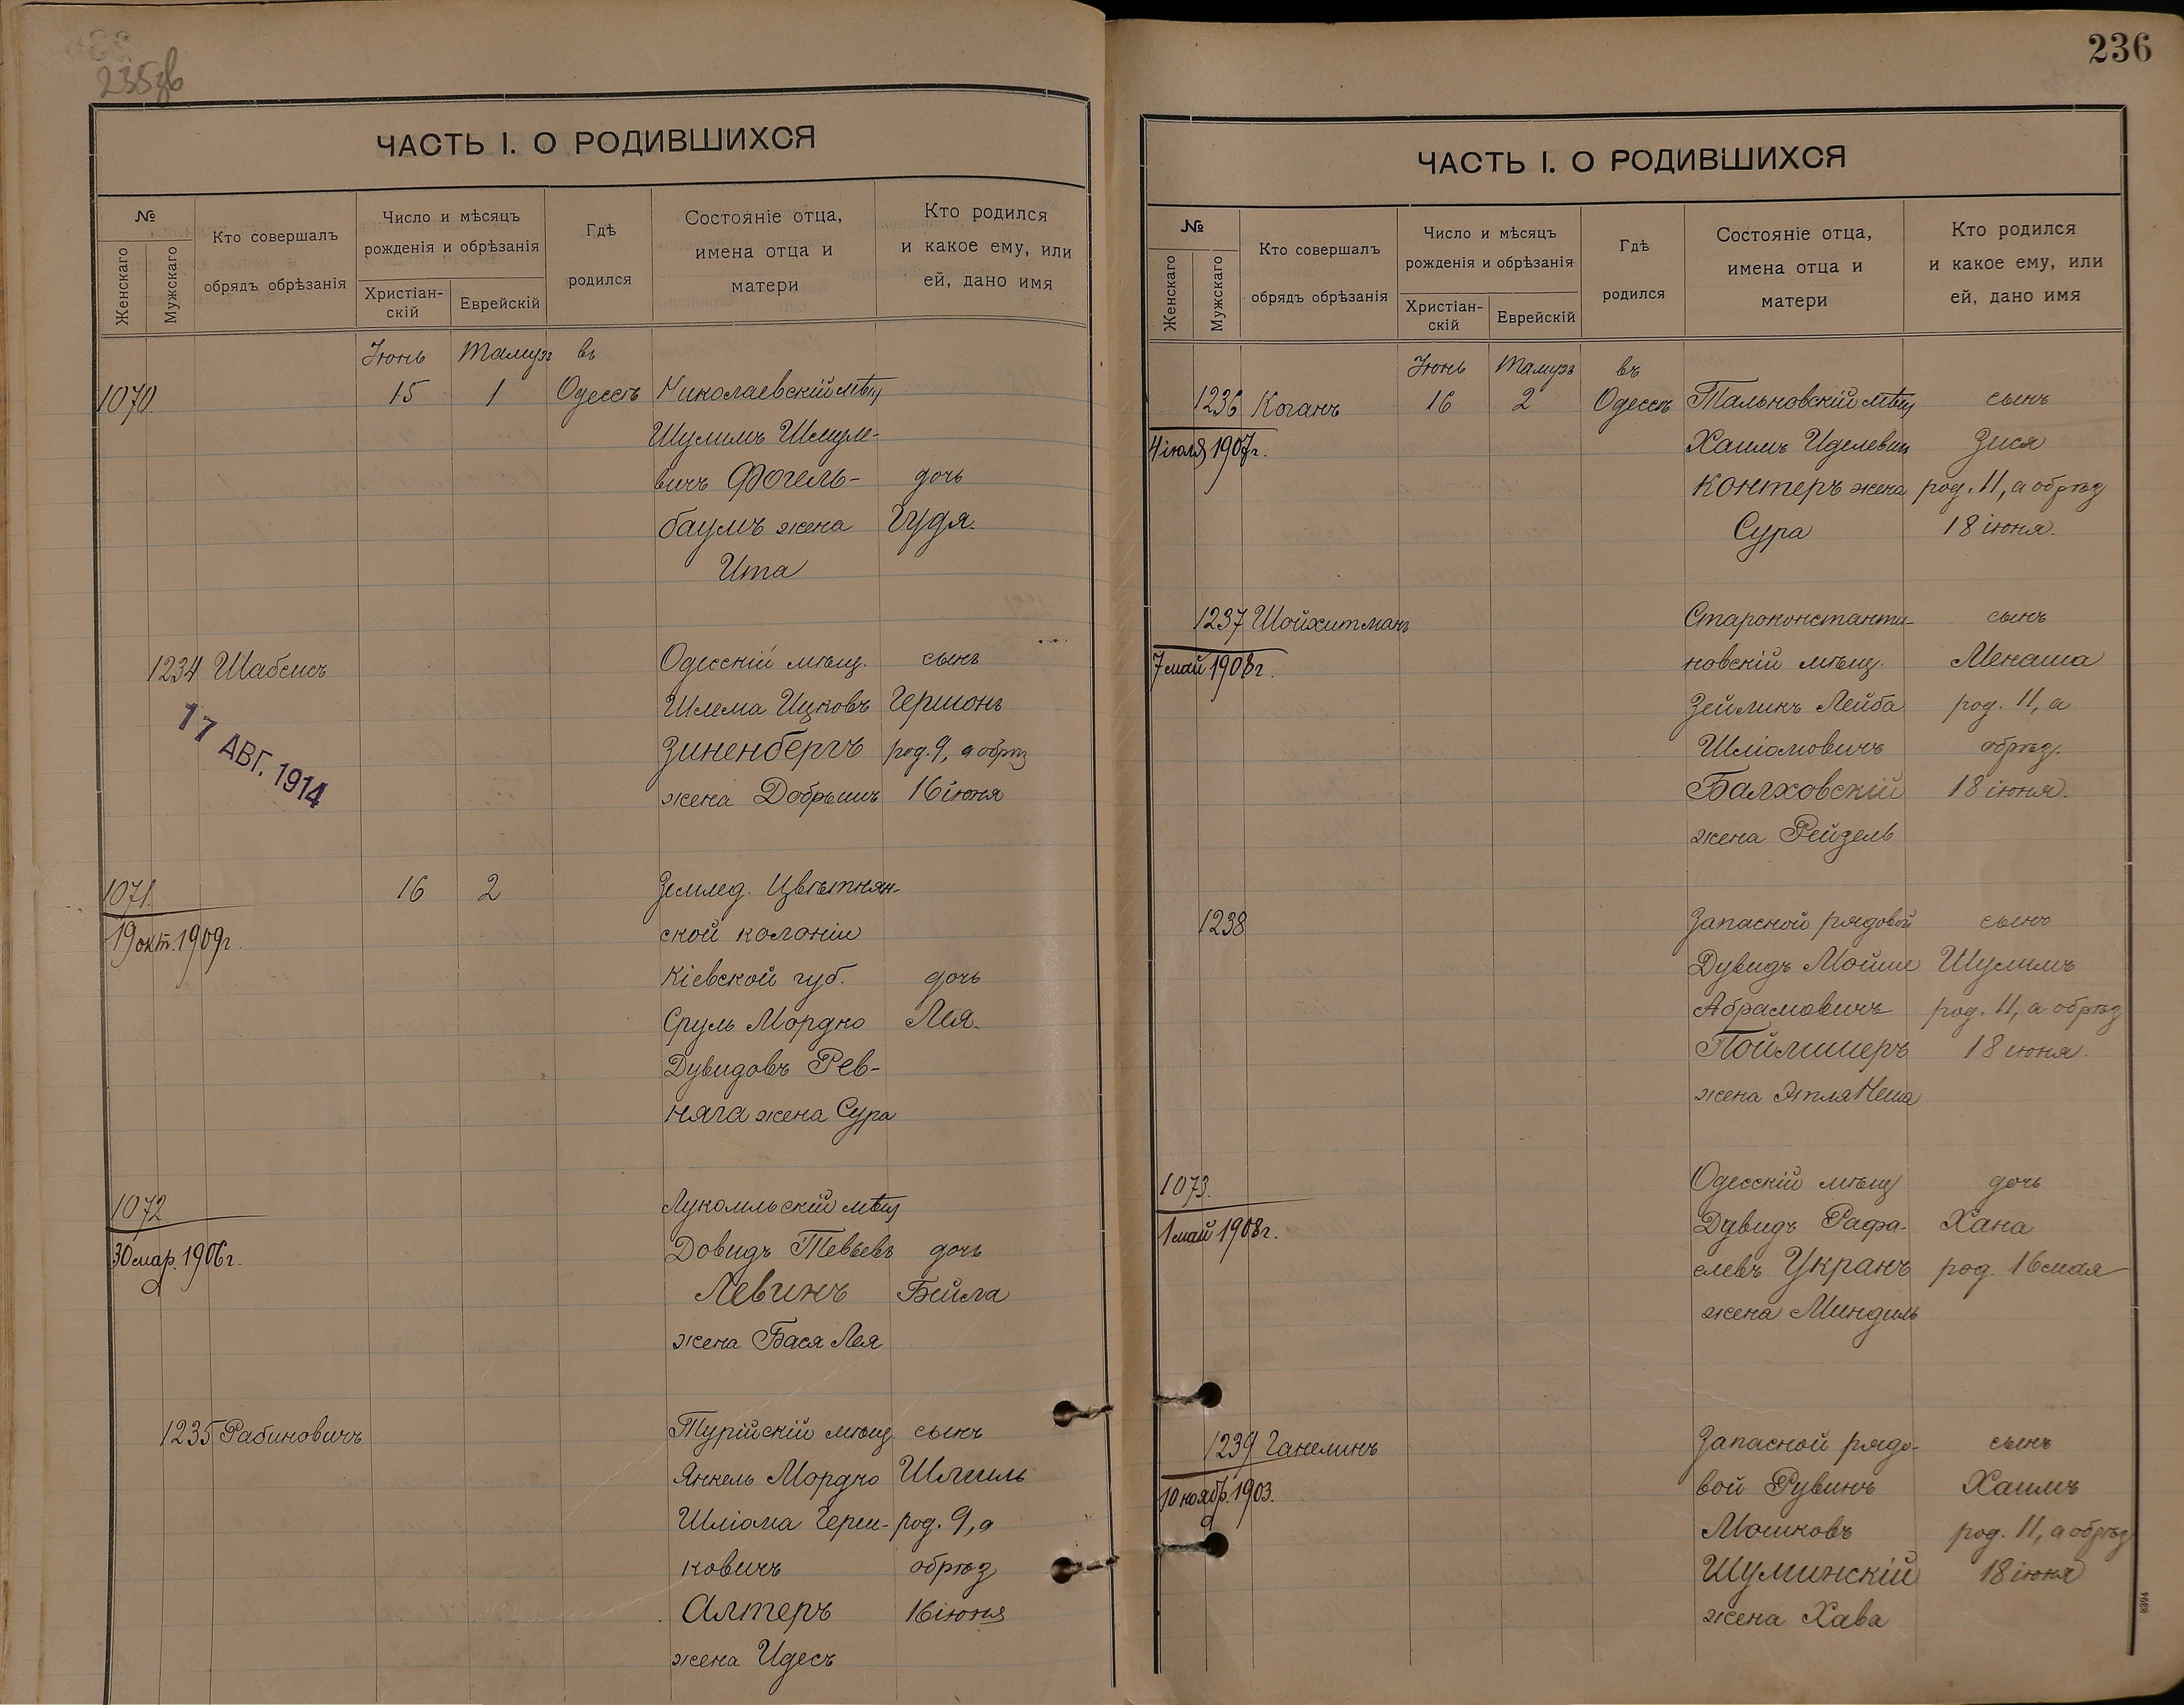 235об
ЧАСТЬ I. О РОДИВШИХСЯ
№
Женскаго
Мужскаго
Кто совершалъ
обрядъ обрѣзанія
Число и мѣсяцъ
рожденія и обрѣзанія
Христіан-
скій
Еврейскій
Гдѣ
родился
Состояніе отца,
имена отца и
матери
Кто родился
и какое ему, или
ей, дано имя
Іюнь Тамузъ въ
1070 15 1 Одессѣ Николаевскій мѣщ
Шулимъ Шмуле-
вичъ Фогель- дочь
баумъ жена Гудя.
Ита
1234 Шабсисъ Одесскій мѣщ. сынъ
Шлема Ицковъ Гершонъ
17 АВГ. 1914
Зиненбергъ род. 9, а обрѣз
жена Добрышъ 16 іюня
1071. 16 2 Землед. Цвѣтнян-
19 окт. 1909г. ской колоніи
Кіевской губ. дочь
Сруль Мордко Лея.
Дувидовъ Рев-
няга жена Сура
1072 Лукомльскій мѣщ
30 мар. 1906г. Довидъ Тевьевъ дочь
Левинъ Бейла
жена Бася Лея
1235 Рабиновичъ Турійскій мѣщ. сынъ
Янкель Мордко Шмиль
Шліома Герш- род. 9, а
ковичъ обрѣз
Алтеръ 16 іюня
жена Идесъ
236
ЧАСТЬ I. О РОДИВШИХСЯ
№
Женскаго
Мужскаго
Кто совершалъ
обрядъ обрѣзанія
Число и мѣсяцъ
рожденія и обрѣзанія
Христіан-
скій
Еврейскій
Гдѣ
родился
Состояніе отца,
имена отца и
матери
Кто родился
и какое ему, или
ей, дано имя
Іюнь Тамузъ въ
1236 Коганъ 16 2 Одессѣ Тальновскій мѣщ сынъ
4 іюля 1907г. Хаимъ Иделевич Зися
Контеръ жена род. 11, а обрѣз
Сура 18 іюня.
1237 Шойхитманъ Староконстанти- сынъ
7 май 1908г. новскій мѣщ. Менаша
Зейликъ Лейба род. 11, а
Шліомовичъ обрѣз.
Балховскій 18 іюня.
жена Рейзель
1238 Запасной рядовой сынъ
Дувидъ Мойше Шулимъ
Абрамовичъ род. 11, а обрѣз
Поймишеръ 18 іюня.
жена Этля Неша
1073. Одесскій мѣщ дочь
1 май 1908г. Дувидъ Рафа- Хана
елевъ Укранъ род. 16 мая
жена Миндель
1239 Ганелинъ Запасной рядо- сынъ
10 ноябр. 1903. вой Рувинъ Хаимъ
Мошковъ род. 11, а обрѣз
Шуминскій 18 іюня
жена Хава